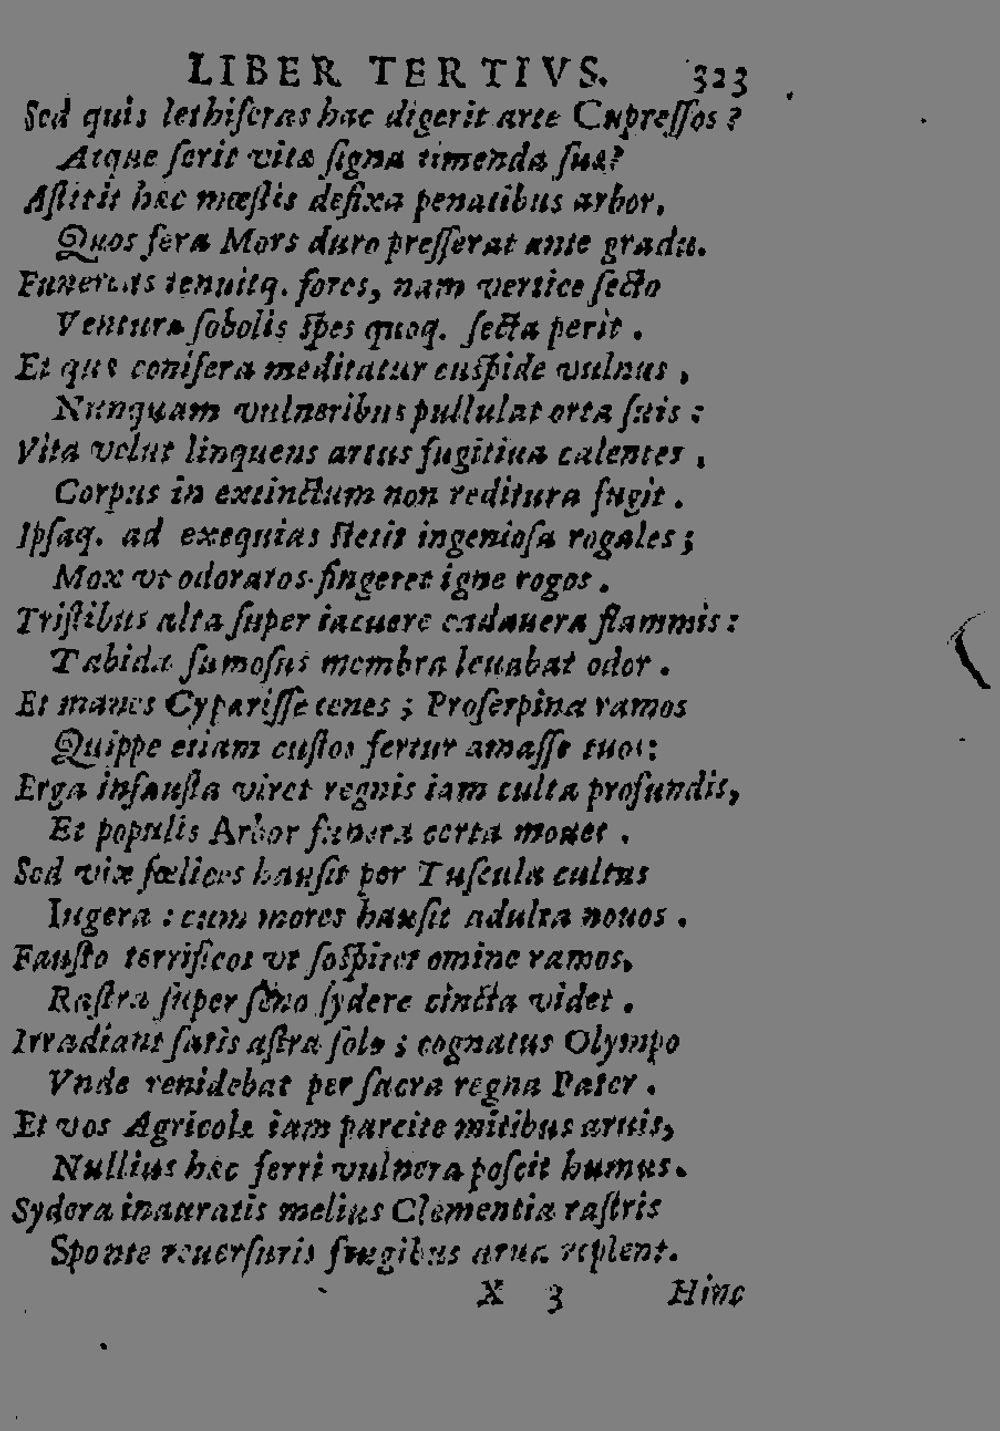 LIBER TERTIVS. 323
Sed quis lethiferas hac digerit arte Cupreſſos?
Atque ſerit vitæ ſigna timenda ſuæ?
Aſtitit hæc mœſtis defixa penatibus arbor,
Quos fera Mors duro preſſerat ante gradu.
Funereas tenuitq. fores, nam vertice ſecto
Venturæ ſobolis ſpes quoq. ſecta perit.
Et quæ conifera meditatur cuſpide vulnus,
Nunquam vulneribus pullulat orta ſuis:
Vita velut linquens artus fugitiua calentes,
Corpus in extinctum non reditura fugit.
Ipſaq. ad exequias ſtetit ingenioſa rogales;
Mox vt odoratos fingeret igne rogos.
Triſtibus alta ſuper iacuere cadauera flammis:
Tabida fumoſus membra leuabat odor.
Et manes Cypariſſe tenes; Proſerpina ramos
Quippe etiam cuſtos fertur amaſſe tuos:
Erga infauſta viret regnis iam culta profundis,
Et populis Arbor funera certa mouet.
Sed vix fœlices hauſit per Tuſcula cultus
Iugera: cum mores hauſit adulta nouos.
Fauſto terrificos vt ſoſpitet omine ramos,
Raſtra ſuper ſeno ſydere cincta videt.
Irradiant ſatis aſtra ſolo; cognatus Olympo
Vnde renidebat per ſacra regna Pater.
Et vos Agricolæ iam parcite mitibus aruis,
Nullius hæc ferri vulnera poſcit humus.
Sydera inauratis melius Clementia raſtris
Sponte reuerſuris frugibus arua replent.
X 3 Hinc